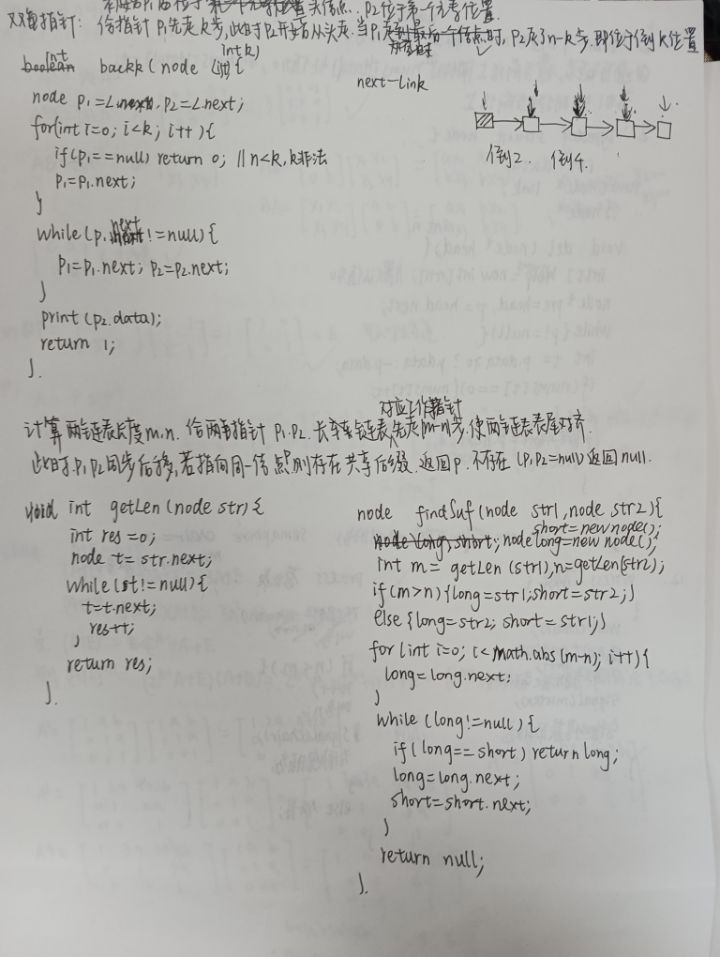 双指针: 给指针P1先走k步,此时P2开始从头走.当P1 时, P2走了n-k步,即位于倒k位置
int backk(node list, int k){
node P1=L.next, P2=L.next;
for(int i=0; i<k; i++){
if(P1==null) return 0; //n<k,k非法
P1=P1.next;
}
while(P1 != null){
P1=P1.next; P2=P2.next;
}
print(P2.data);
return 1;
}.
next-link
倒2. 倒4.
对应工作指针
计算两链表长度m,n. 给两指针P1.P2. 长链表先走|m-n|步,使两链表表尾对齐.
此时P1,P2同步后移,若指向同一结点则存在共享后缀.返回P.不存在(P1,P2=null)返回null.
int getLen(node str){
int res=0;
node t= str.next;
while(t!=null){
t=t.next;
res++;
}
return res;
}.
node findSuf(node str1,node str2){
short=new node();
node long=new node();
int m= getLen(str1),n=getLen(str2);
if(m>n){long=str1;short=str2;}
else{long=str2; short=str1;}
for(int i=0; i<math.abs(m-n); i++){
long=long.next;
}
while(long!=null){
if(long==short) return long;
long=long.next;
short=short.next;
}
return null;
}.